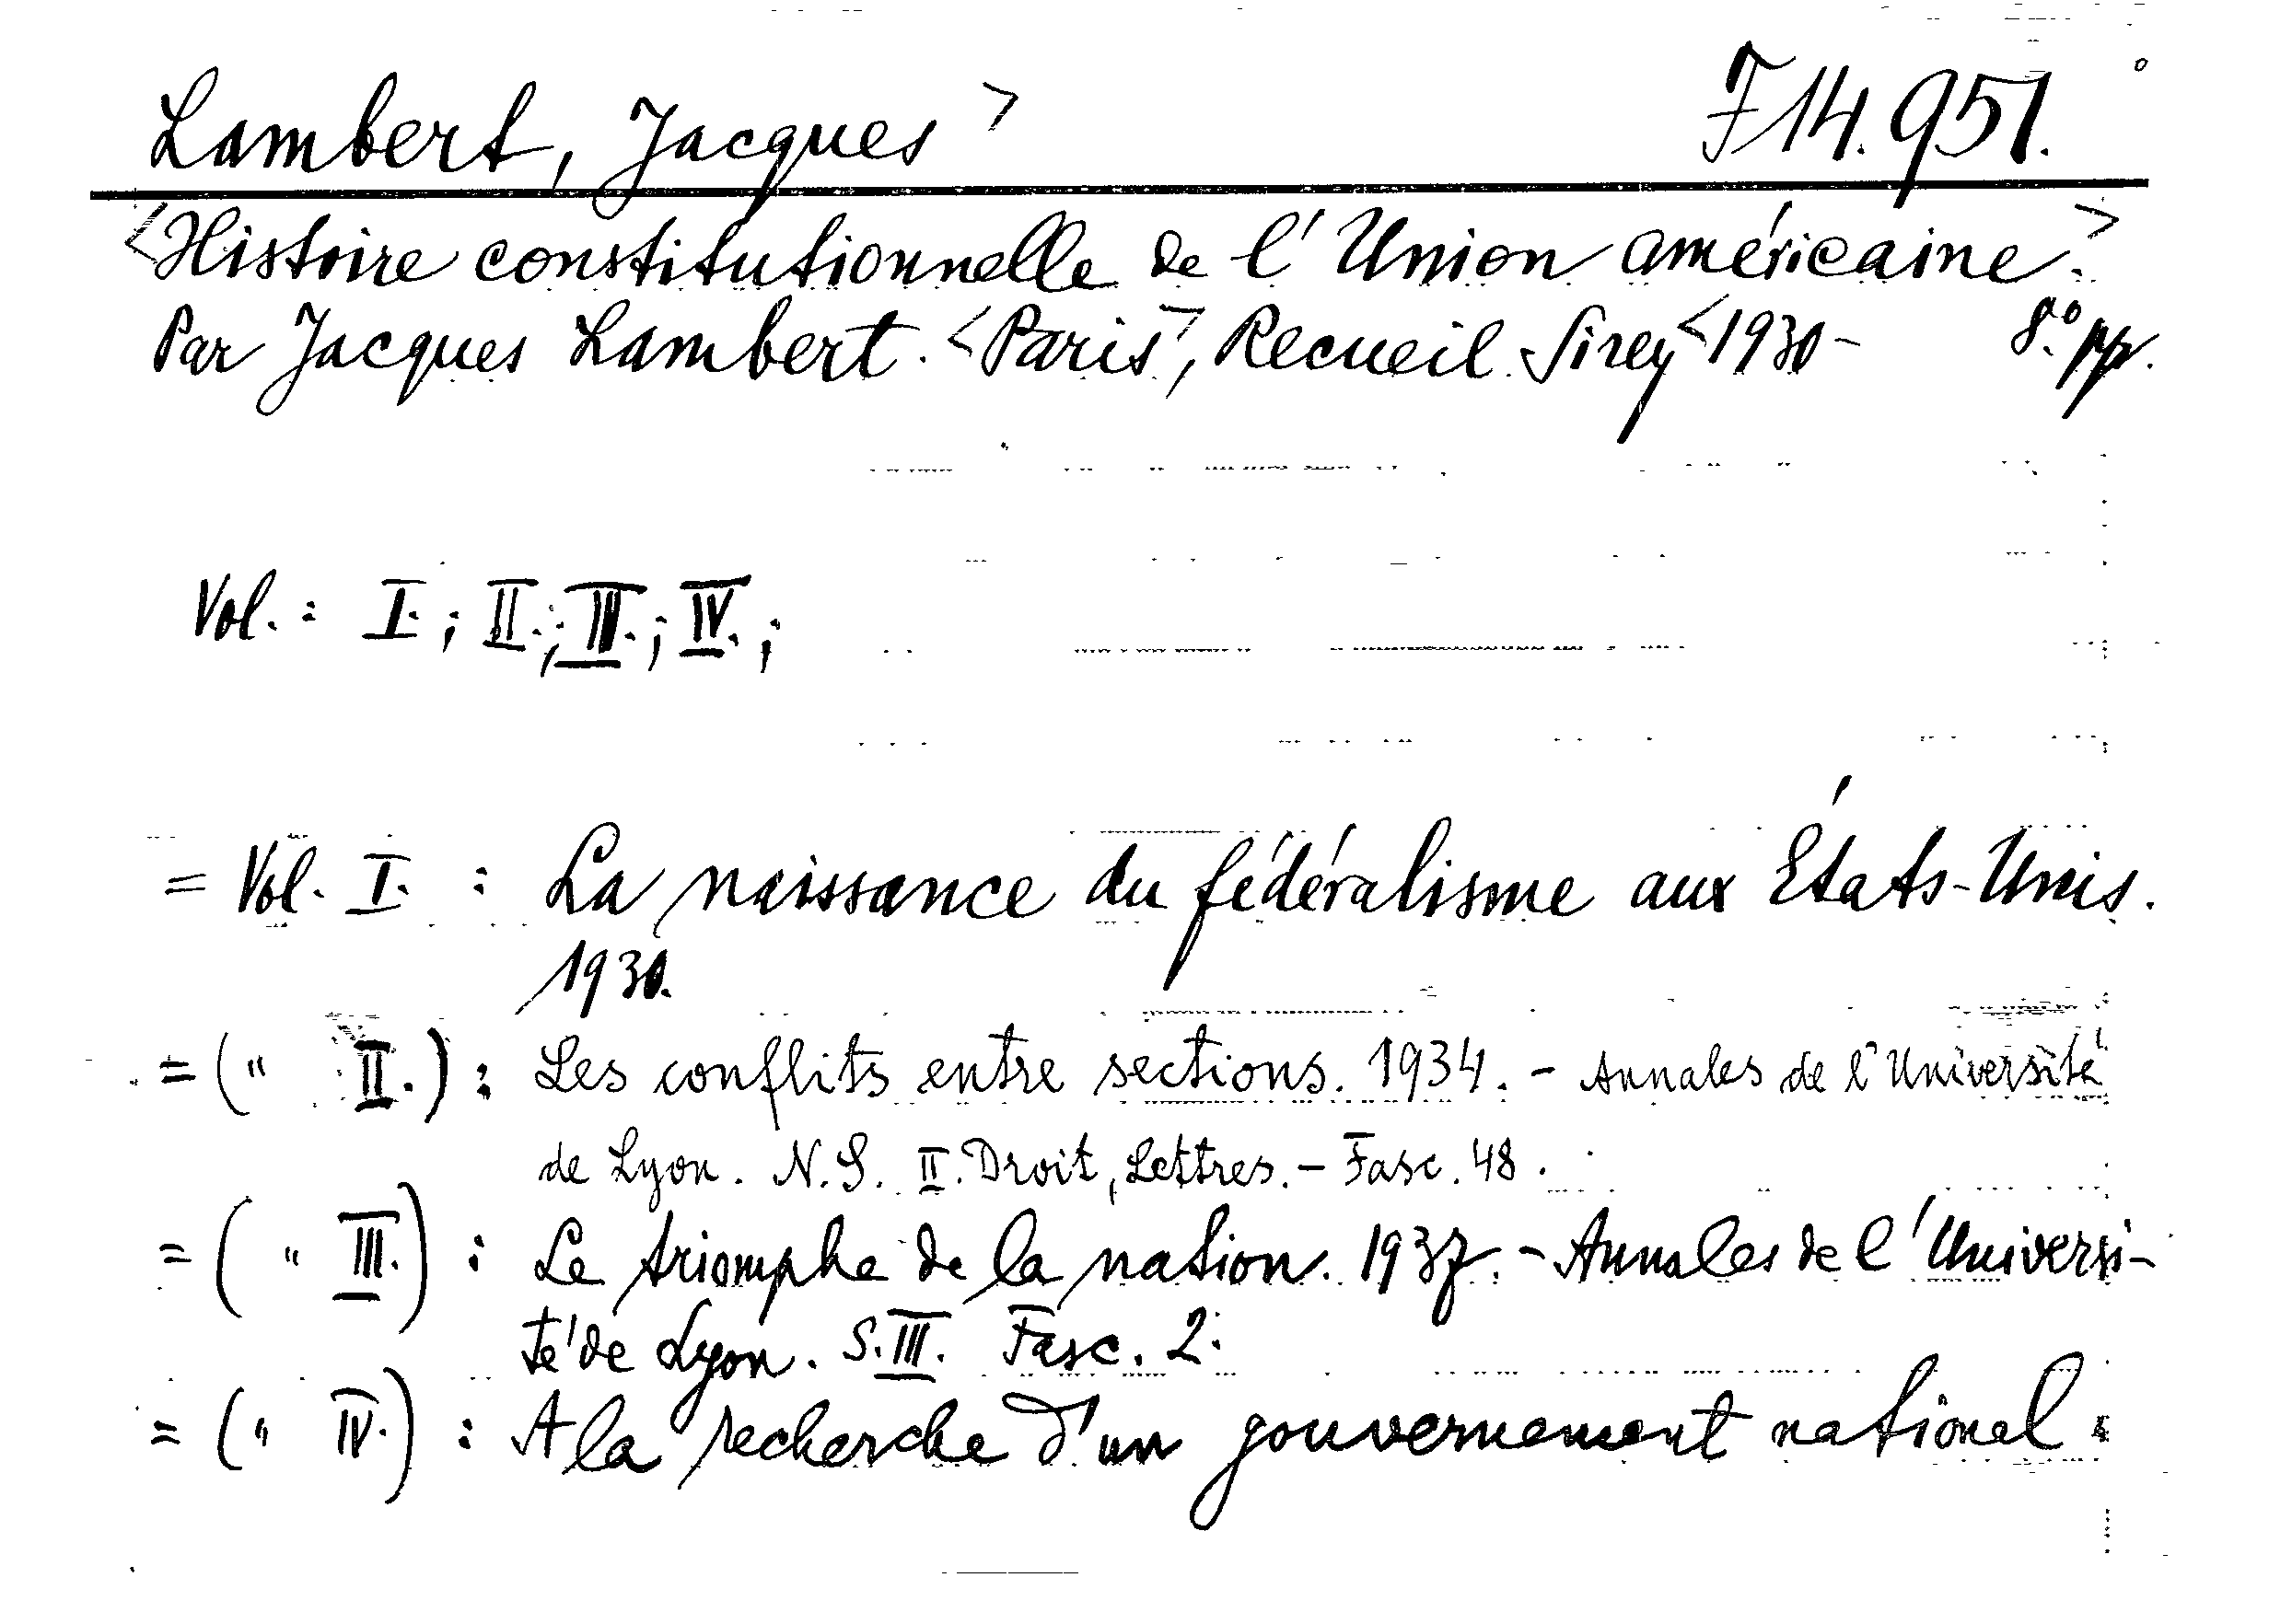 Lambert, Jacques > F 14.951.
<Histoire constitutionnelle de l'Union américaine.>
Par Jacques Lambert. <Paris>, Recueil Sirey <1930- 8.° pp.
Vol. : I. ; II. ; III. ; IV. ;
= Vol. I. : La naissance du fédéralisme aux États-Unis.
1930.
= (" II.) : Les conflits entre sections. 1934. - Annales de l'Université
de Lyon. N.S. II. Droit, Lettres. - Fasc. 48.
= (" III.) : Le triomphe de la nation. 1937. - Annales de l'Universi-
té de Lyon. S. III. Fasc. 2.
= (" IV.) : A la recherche d'un gouvernement national.